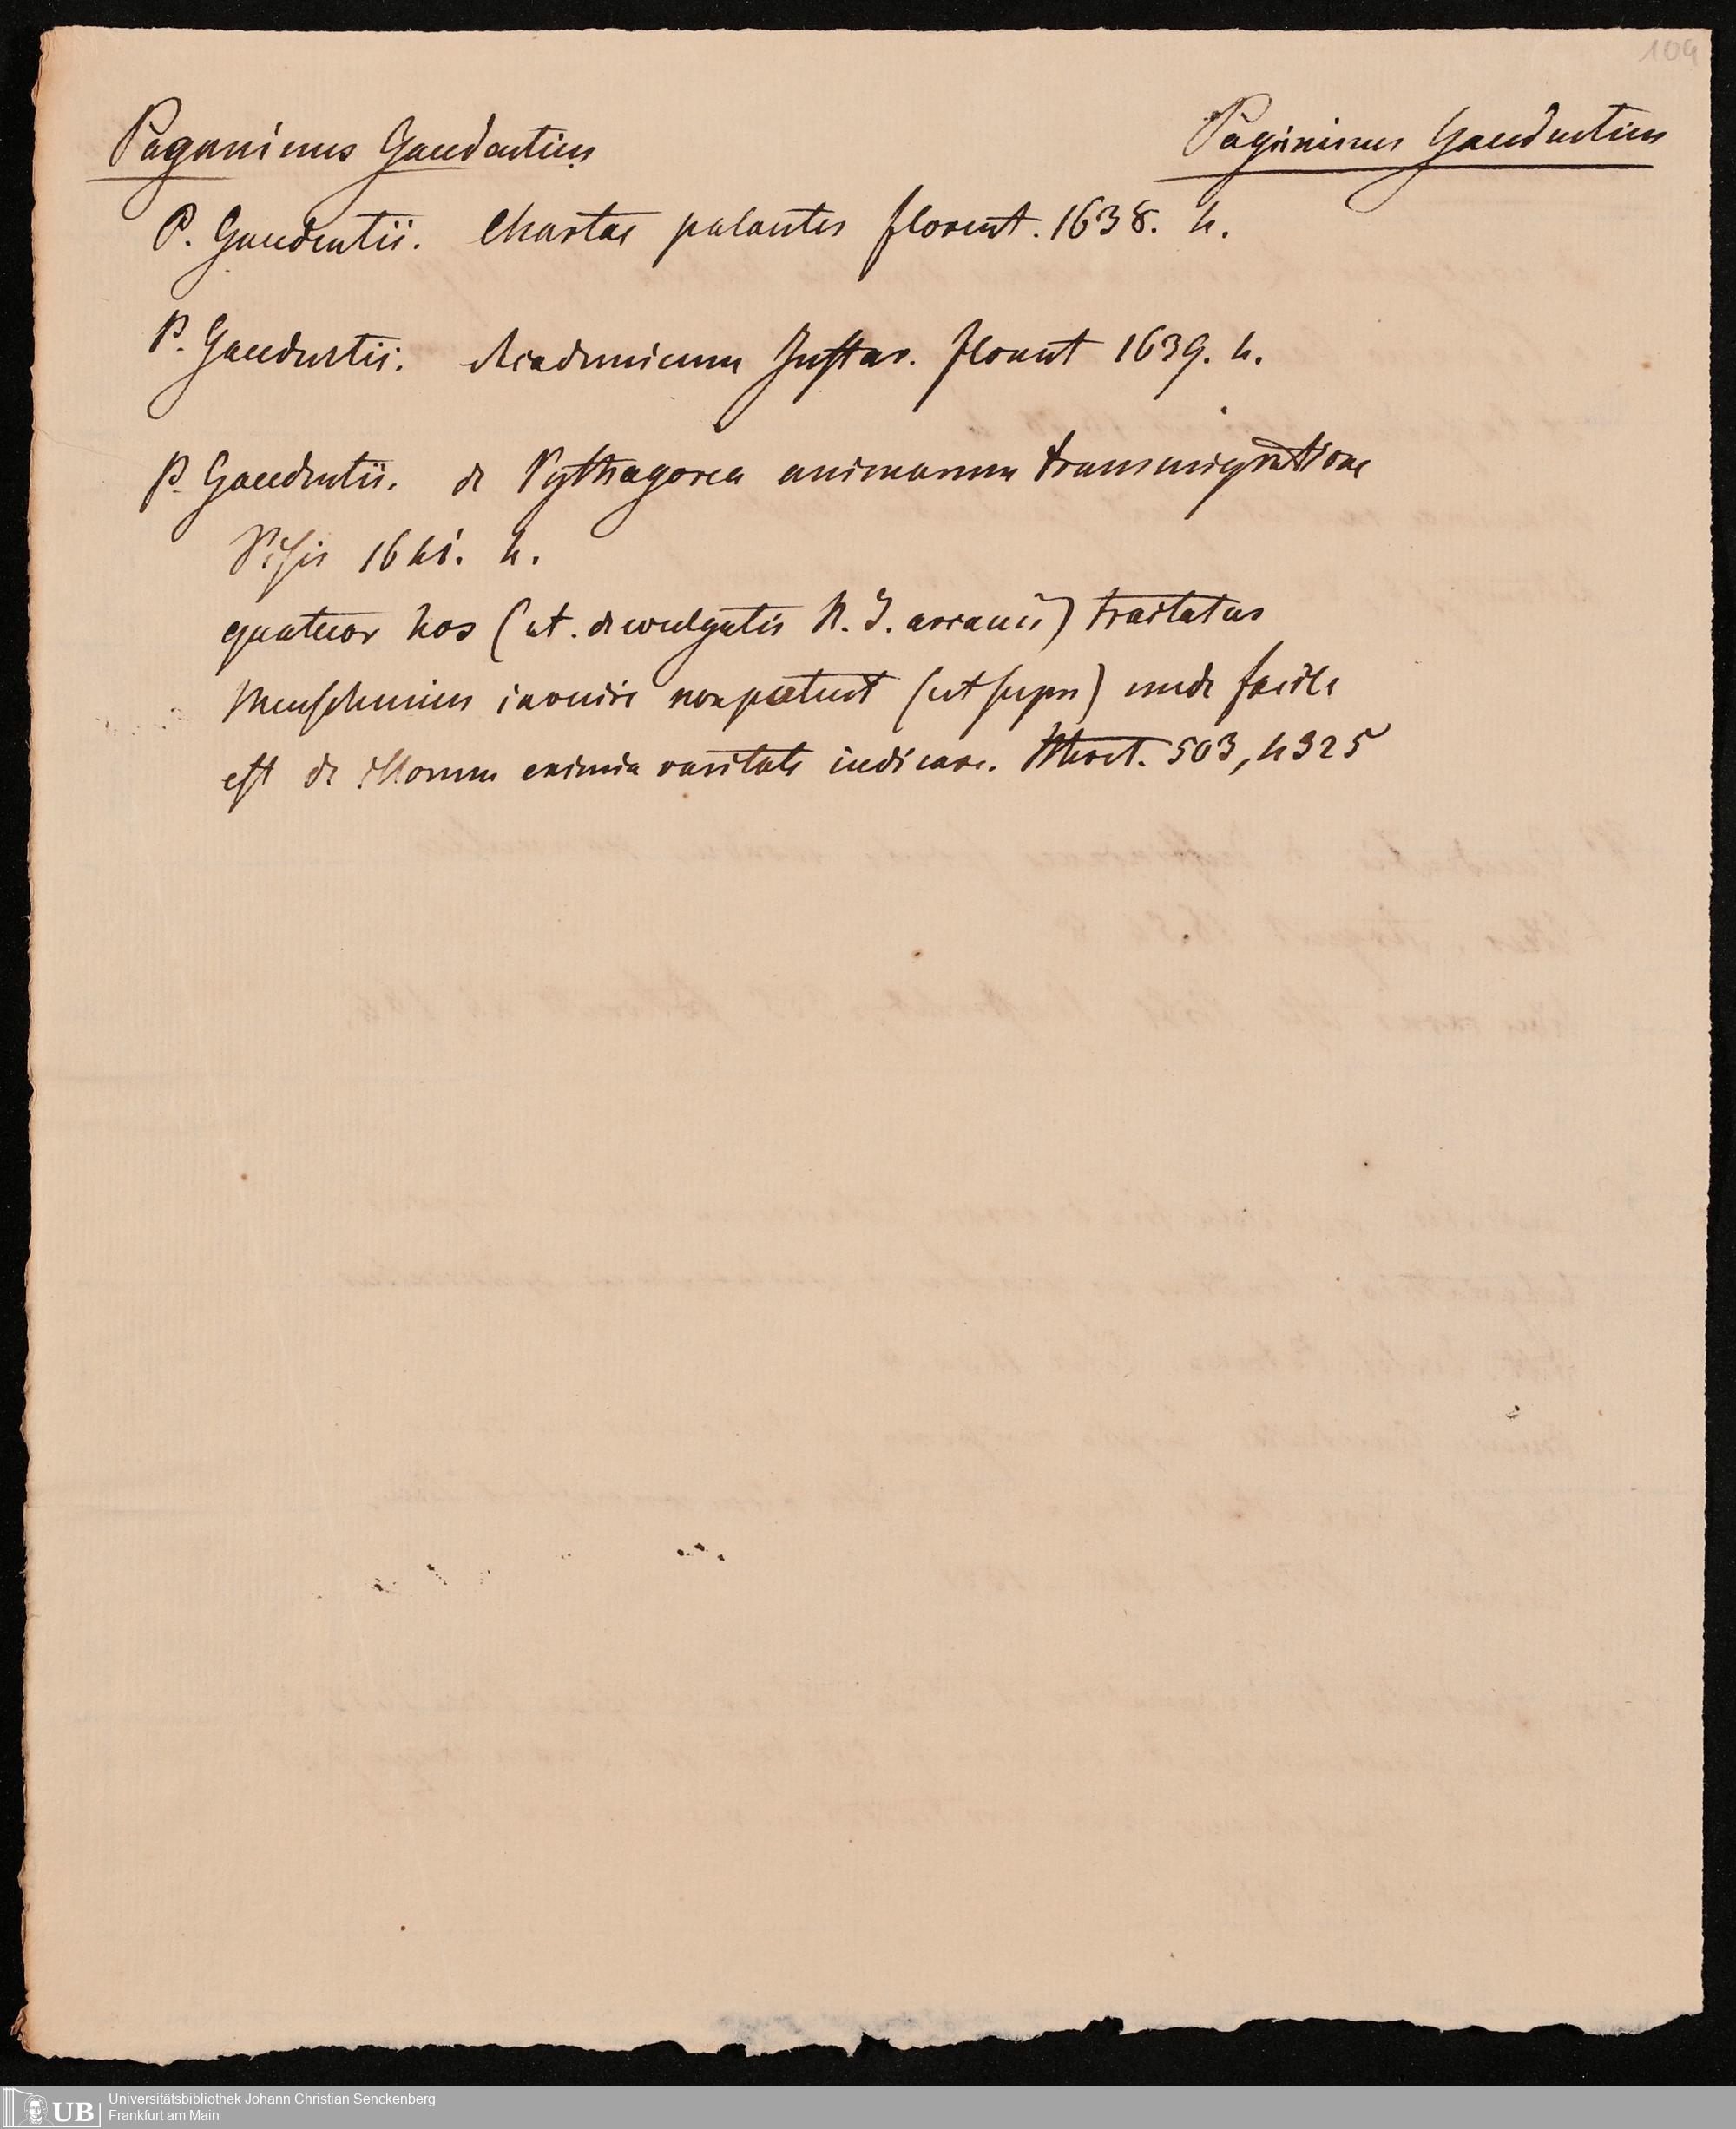 104
Paganinus Gaudentius
Paganinus Gaudentius
P. Gaudentii. Chartae palantes florent. 1638. 4.
P. Gaudentii. Academicum Instar. florent 1639. 4.
P. Gaudentii. de Pythagorea animarum transmigratione
Pisis 1641. 4.
quatuor hos (et. de evulgatis N. I. arcanis) tractatus
Menschenius invenire non potuit (ut supra) unde facile
est de illorum eximia raritate iudicare. 503, 4325
Universitätsbibliothek Johann Christian Senckenberg
Frankfurt am Main
UB